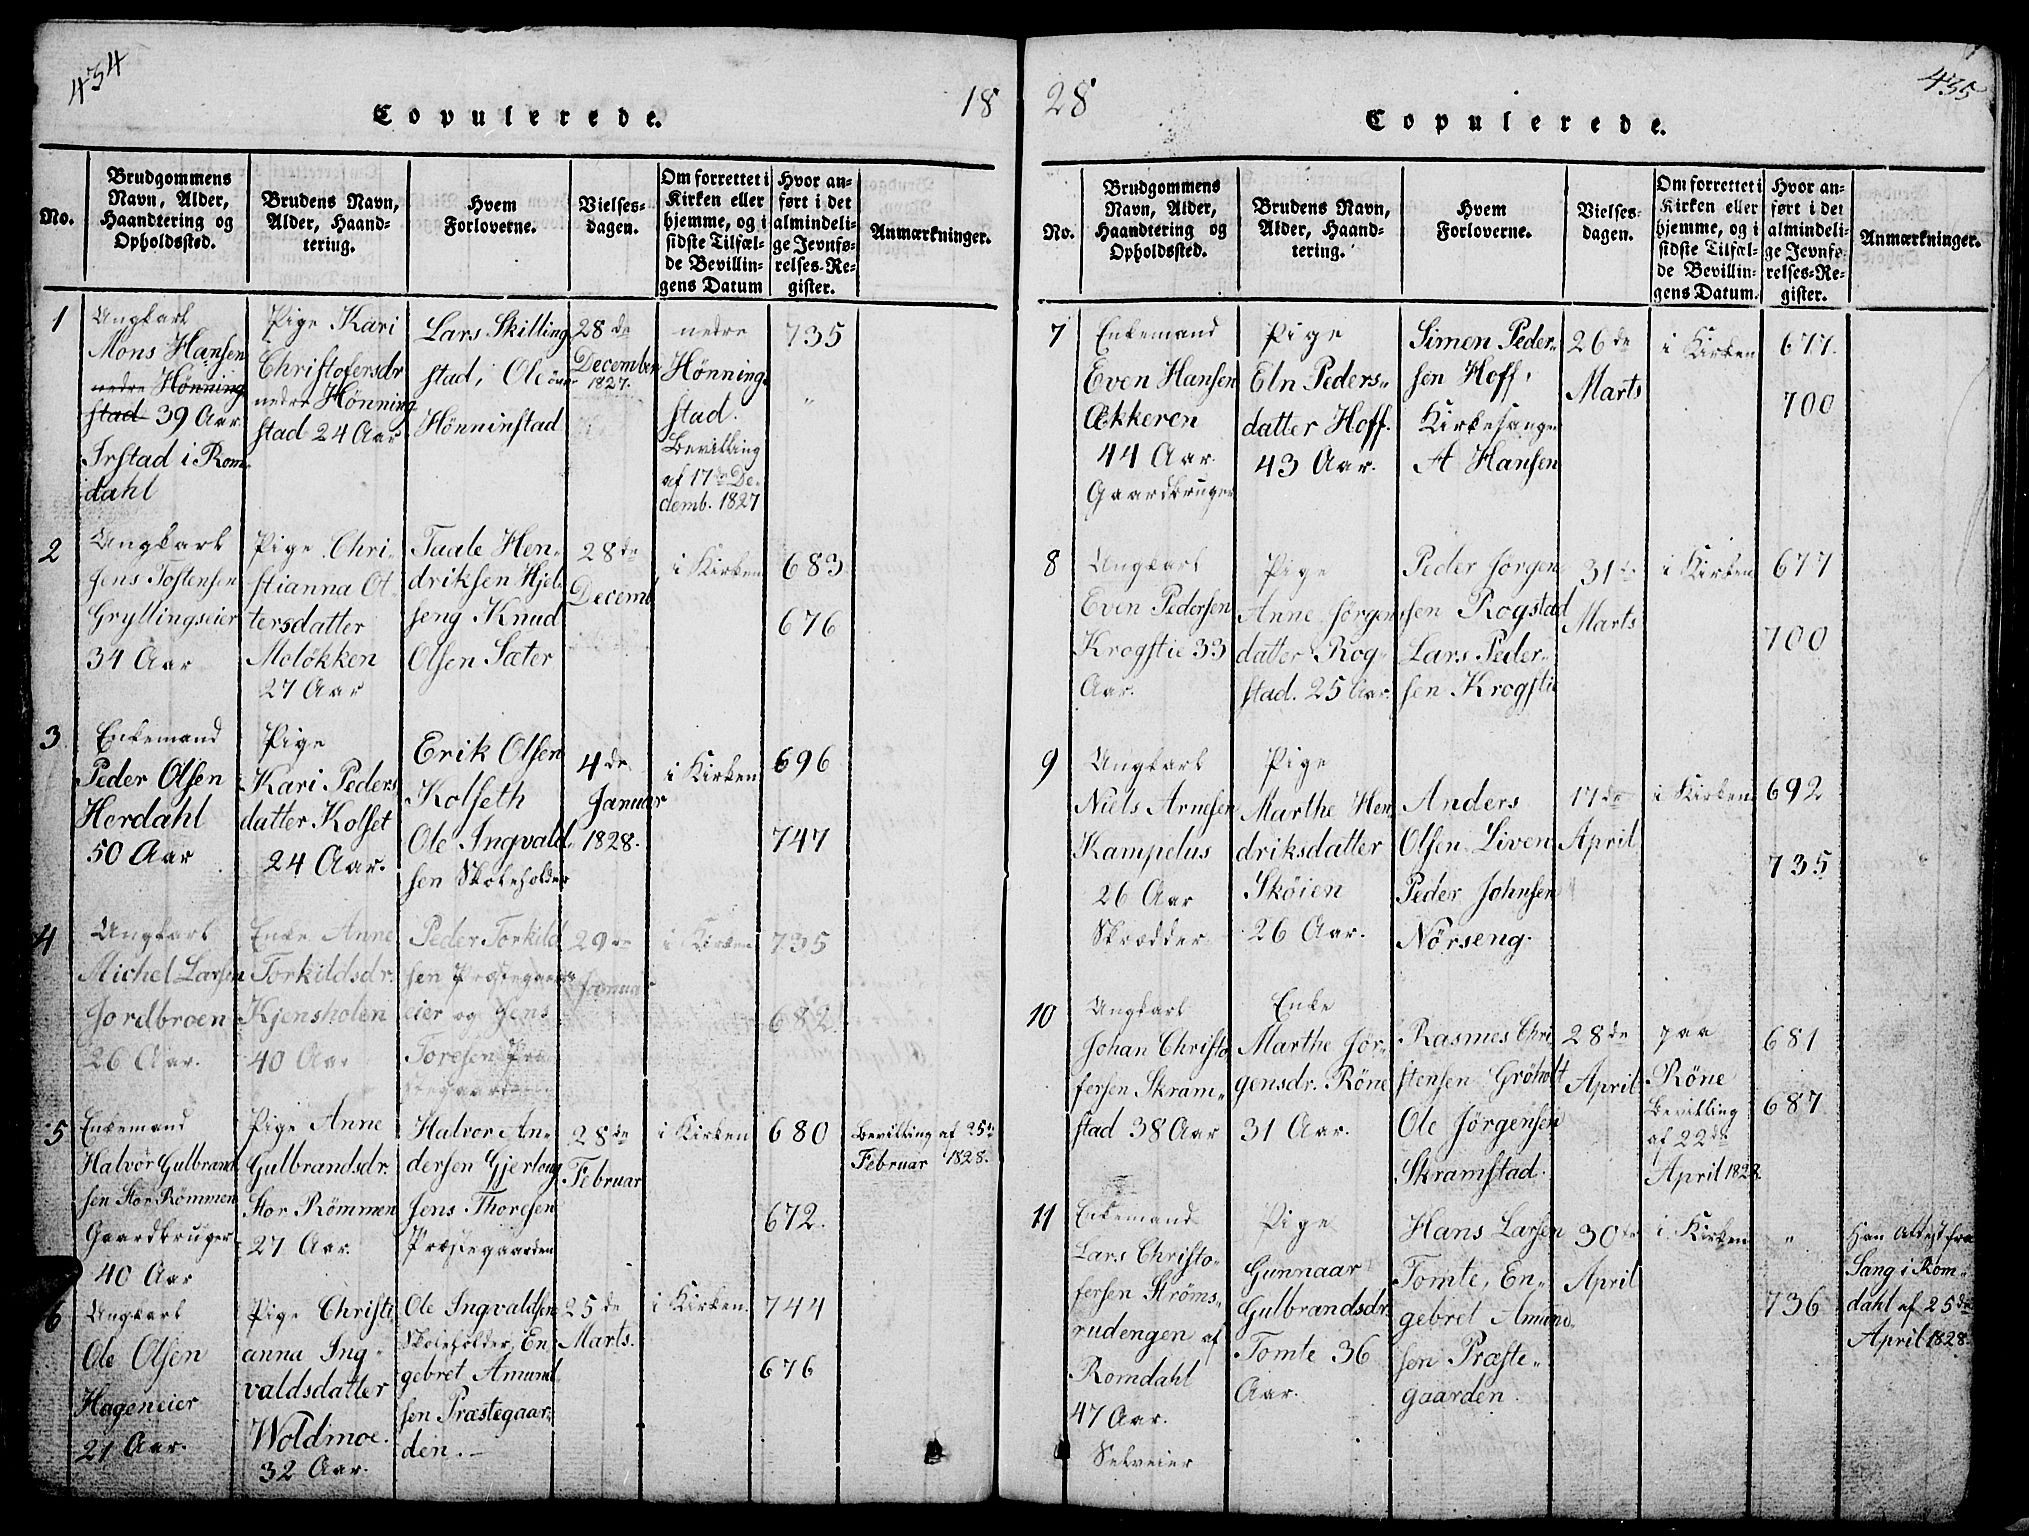 434
18
Copulerede.
No.
Brudgommens
Navn, Alder,
Haandtering og
Opholdssted.
Brudens Navn,
Alder, Haand-
tering.
Hvem
Forloverne.
Vielses-
dagen.
Om forrettet i
Kirken eller
hjemme, og i
sidste Tilfæl-
de Bevillin-
gens Datum
Hvor an-
ført i det
almindeli-
ge Jevnfø-
relses-Re-
gister.
Anmærkninger.
1
Ungkarl
Mons Hansen
nedre Hønning
stad 39 Aar
Irstad i Rom-
dahl
Pige Kari
Christofersdr
nedre Hønning
stad 24 Aar
Lars Skilling
stad, Ole øvr
Hønninstad
28de
December
1827.
nedre
Hønning-
stad.
Bevilling
af 17de De-
cemb. 1827
735
"
2
Ungkarl
Jens Tostensen
Gryllingseier
34 Aar
Pige Chri-
stianna Ot-
tersdatter
Moløkken
27 Aar
Taale Hen-
driksen Hjel-
seng Knud
Olsen Sæter
28de
Decemb.
i Kirken
683
676
3
Enkemand
Peder Olsen
Herdahl
50 Aar
Pige
Kari Peders
datter Kolset
24 Aar.
Erik Olsen
Kolseth
Ole Ingvald-
sen Skoleholder
4de
Januar
1828.
i Kirken
696
747
4
Ungkarl
Michel Larsen
Jordbroen
26 Aar.
Enke Anne
Torkildsdr.
Kjensholen
40 Aar
Peder Torkild
sen Præstegaards
eier og Jens
Toresen Præ
stegaarden
29de
Januar
i Kirken
735
682.
5
Enkemand
Halvor Gulbrand
sen Stor Rømmen
Gaardbruger
40 Aar
Pige Anne
Gulbrandsdr.
Stor Rømmen
27 Aar.
Halvor An-
dersen Gjerlong
Jens Thoresen
Præstegaarden
28de
Februar
i Kirken
680
672.
Bevilling af 25de
Februar 1828.
6
Ungkarl
Ole Olsen
Hageneier
21 Aar.
Pige Christi
anna Ing-
valdsdatter
Woldmoe.
32 Aar.
Ole Ingvaldsen
Skoleholder, En-
gebret Amund
sen Præstegaar-
den.
25de
Marts.
i Kirken.
744
676
28
435
Copulerede.
No.
Brudgommens
Navn, Alder,
Haandtering og
Opholdssted.
Brudens Navn,
Alder, Haand-
tering.
Hvem
Forloverne.
Vielses-
dagen.
Om forrettet i
Kirken eller
hjemme, og i
sidste Tilfæl-
de Bevillin-
gens Datum.
Hvor an-
ført i det
almindeli-
ge Jevnfø-
relses-Re-
gister.
Anmærkninger.
7
Enkemand
Even Hansen
Ækkeren
44 Aar.
Gaardbruger
Pige
Eln Peders-
datter Hoff.
43 Aar.
Simen Peder-
sen Hoff,
Kirkesanger
A Hansen
26de
Marts
i Kirken
677.
700
8
Ungkarl
Even Pedersen
Krogstie 33
Aar.
Pige
Anne Jørgens
datter Rog-
stad. 25 Aar.
Peder Jørgen
sen Rogstad
Lars Peder-
sen Krogstie
31te
Marts
i Kirken
677
700
9
Ungkarl
Niels Arnesen
Kampelus
26 Aar
Skrædder
Pige
Marthe Hen
driksdatter
Skøien
26 Aar.
Anders
Olsen Liven
Peder Johnsen
Nørseng.
17de
April
i Kirken.
692
735
10
Ungkarl
Johan Christo
fersen Skram-
stad 38 Aar
Enke
Marthe Jør-
gensdr. Røne
31 Aar.
Rasmes Chri
stensen Grøholt
Ole Jørgensen
Skramstad.
28de
April
paa
Røne
Bevilling
af 22de
April 1828.
681
687
11
Enkemand
Lars Christo-
fersen Strøms-
rudengen af
Romdahl
47 Aar.
Selveier
Pige
Gunnaar
Gulbrandsdr.
Tomte 36
Aar.
Hans Larsen
Tomte, En-
gebret Amund-
sen Præste-
gaarden.
30te
April
i Kirken
"
736
Han Attest fra
Sang i Rom-
dahl af 25de
April 1828.